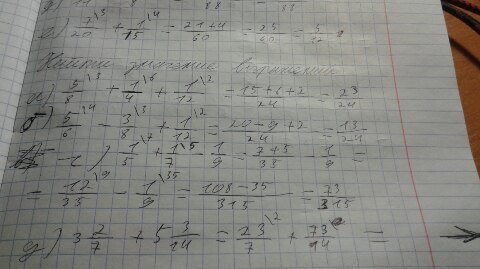 е) 7/20 \3 + 1/15 \4 = 21+4/60 = 25/60 = 5/12
Найти значение выражений
а) 5/8 \3 + 1/4 \6 + 1/12 \2 = 15+6+2/24 = 23/24
б) 5/6 \4 - 3/8 \3 + 1/12 \2 = 20-9+2/24 = 13/24
г) 1/5 \7 + 1/7 \5 - 1/9 = 7+5/35 - 1/9 =
= 12/35 \9 - 1/9 \35 = 108-35/315 = 73/315
д) 3 2/7 + 5 3/14 = 23/7 \2 + 73/14 =